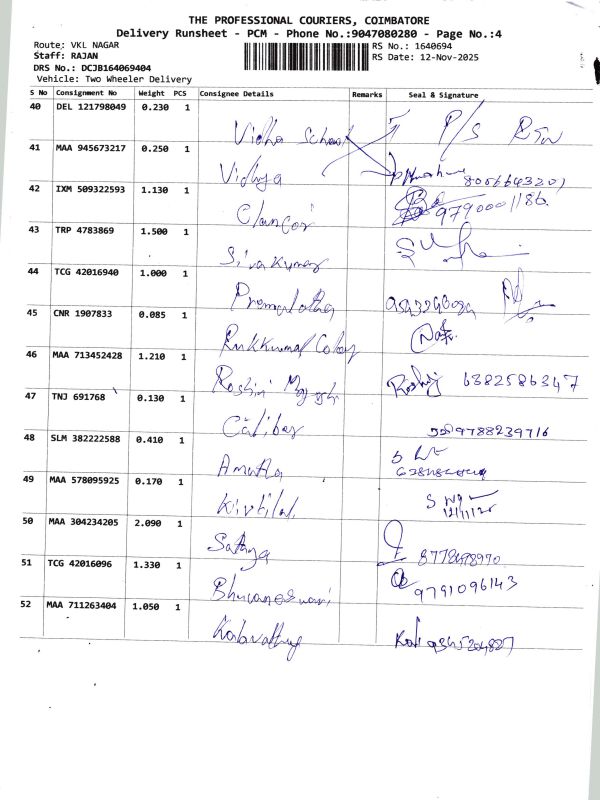 THE PROFESSIONAL COURIERS, COIMBATORE
Delivery Runsheet - PCM - Phone No.:9047080280 - Page No.:4
Route: VKL NAGAR RS No.: 1640694
Staff: RAJAN RS Date: 12-Nov-2025
DRS No.: DCJB164069404
Vehicle: Two Wheeler Delivery
S No Consignment No Weight PCS Consignee Details Remarks Seal & Signature
40 DEL 121798049 0.230 1 Vidha School P/S
41 MAA 945673217 0.250 1 Vidhya 8056643201
42 IXM 509322593 1.130 1 9790001186
43 TRP 4783869 1.500 1 Sivakumar
44 TCG 42016940 1.000 1 Premalatha
45 CNR 1907833 0.085 1
46 MAA 713452428 1.210 1 Roshini 6382586347
47 TNJ 691768 0.130 1 Caliber 9788239716
48 SLM 382222588 0.410 1 Amutha
49 MAA 578095925 0.170 1 Kirtilal
50 MAA 304234205 2.090 1 Sathya
51 TCG 42016096 1.330 1 Bhuvaneswari 9791096143
52 MAA 711263404 1.050 1 Kalavathy